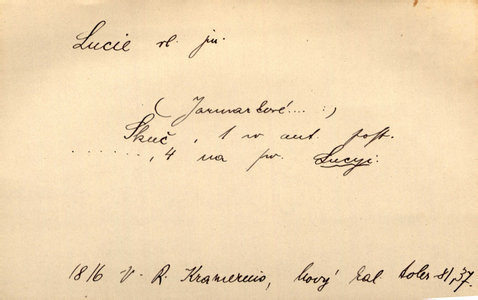 Lucie vl. jm.
( Jarmarkové... :)
Skuč, 1 w aut. post.
......., 4 na sv. Lucyi.
1816 V. R. Kramerius, Nový kal. toler. 81, 37.